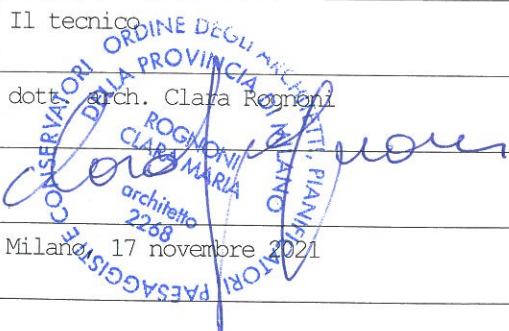 Il tecnico
dott. arch. Clara Rognoni
Milano, 17 novembre 2021
ORDINE DEGLI ARCHITETTI, PIANIFICATORI PAESAGGISTI E CONSERVATORI
DELLA PROVINCIA DI MILANO
ROGNONI
CLARA MARIA
architetto
2268
Clara Rognoni